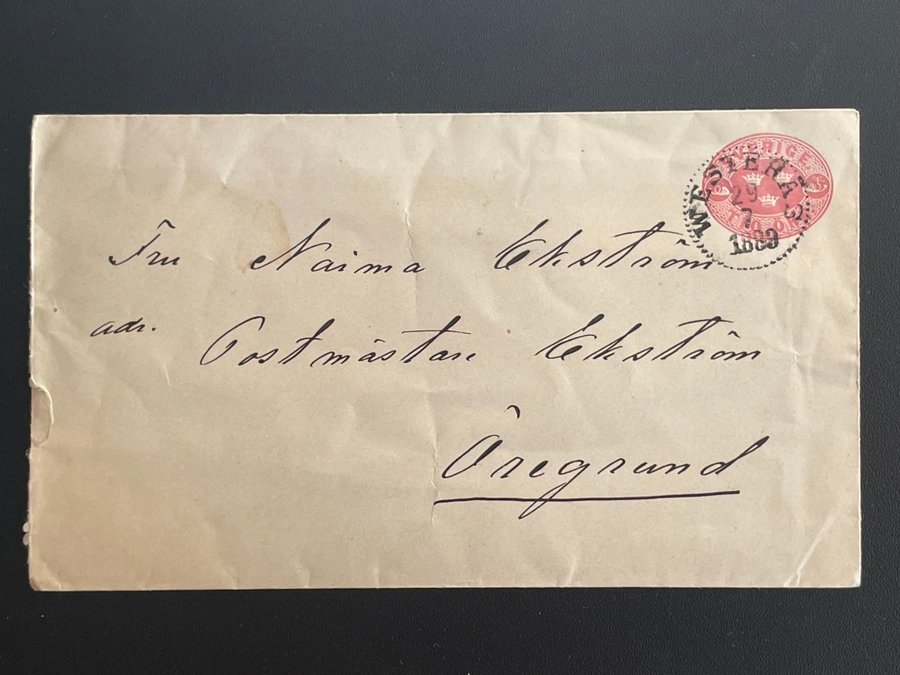 SVERIGE
TIO ÖRE
WESTERÅS
29
7
1889
Fru Naima Ekström
adr.
Postmästare Ekström
Öregrund